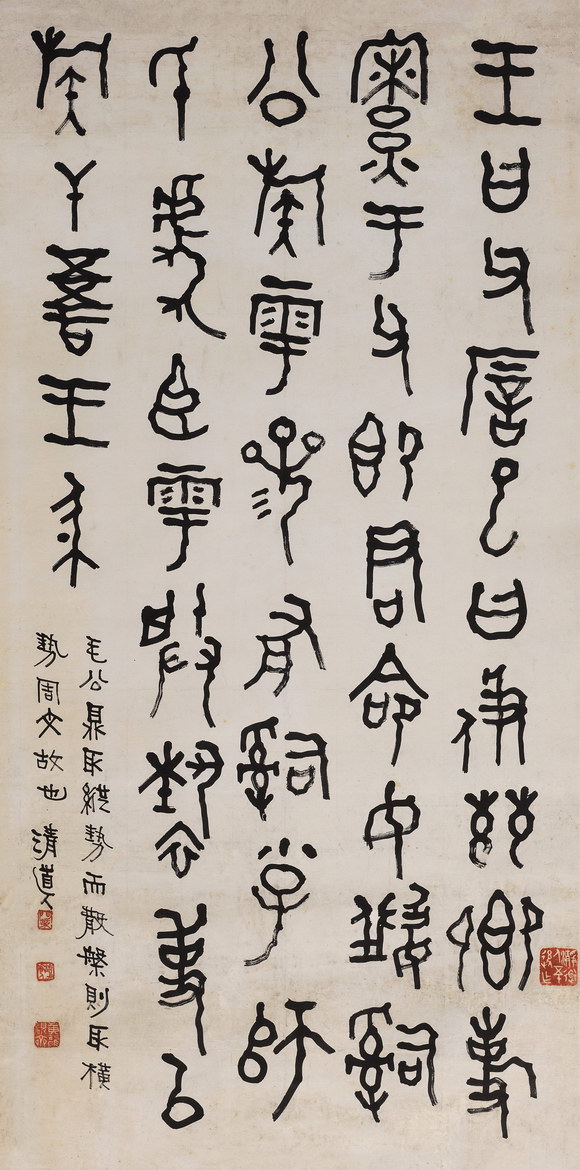 王曰父厝已曰彶茲卿事
寮于父即君命女𤔲
公族雩參有𤔲小子師
氏虎臣雩朕褻事以
族干吾王身
毛公鼎取縱勢而散槃則取橫
勢周文故也 清道人